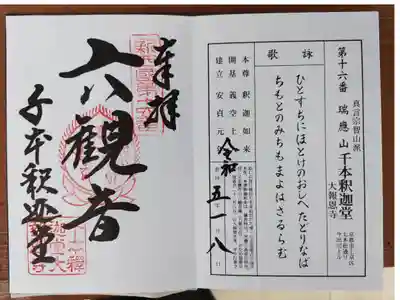 真言宗智山派
第十六番 瑞應山 千本釈迦堂
大報恩寺
京都市上京区
七本松通り
今出川上ル
詠歌
ひとすちにほとけのおしへたどりなば
ちもとのみちもまよはさるらむ
本尊 釈迦如来
開基 義空上
建立 安貞元
令和 五 一 八
奉拝
六観音
千本釈迦堂